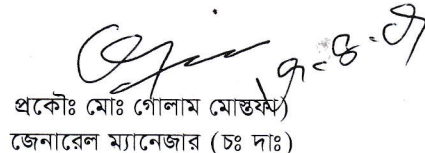 প্রকৌঃ মোঃ গোলাম মোস্তফা)
জেনারেল ম্যানেজার (চঃ দাঃ)